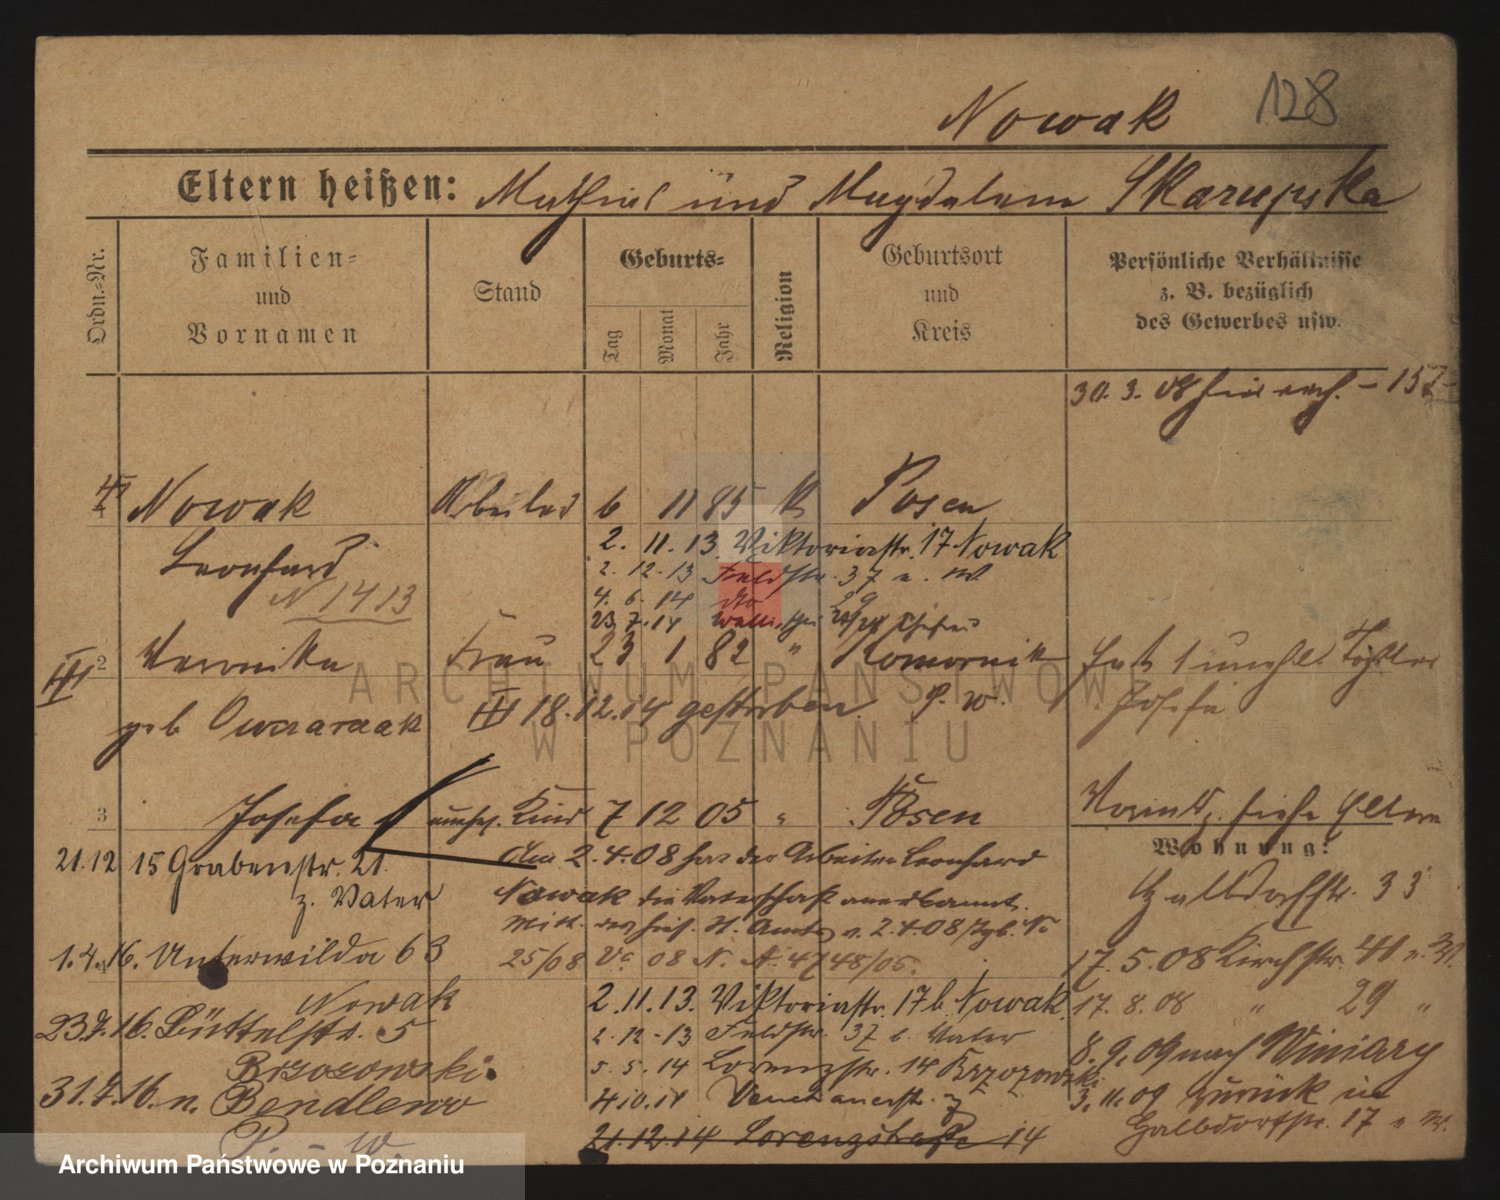 Nowak 128
Eltern heißen: Mathias und Magdalena Skarupska
Ordn.-Nr.
Familien-
und
Vornamen
Stand
Geburts-
Tag
Monat
Jahr
Religion
Geburtsort
und
Kreis
Persönliche Verhältnisse
z. B. bezüglich
des Gewerbes usw.
30. 3. 08
1 Nowak Arbeiter 6 11 85 k Posen
Leonhard
N 1413
2. 11. 13 Viktoriastr. 17 Nowak
2. 12. 13 Feldstr. 37
4. 6. 14 dto 29
23. 7. 14
2 Veronika Frau 23 1 82 " Komornik
geb Owczarzak
18. 12. 14 gestorben P. W.
hat 1 unehl. Tochter
Josefa
3 Josefa unehel. Kind 7 12 05 " Posen
siehe Eltern
Am 2. 4. 08 hat der Arbeiter Leonhard
Nowak die Vaterschaft anerkannt.
2. 4. 08
25/08
21. 12 15 Grabenstr. 21.
z. Vater
1. 4. 16. Unterwilda 63
Nowak
23. 7. 16. Büttelstr. 5
Brzozowski
31. 7. 16. n. Bendlewo
P. - W.
2. 11. 13. Viktoriastr. 17 b. Nowak
2. 12. 13 Feldstr. 37 b. Vater
5. 5. 14 Lorenzstr. 14 Brzozowski
4. 10. 14
21. 12. 14 Lorenzstraße 14
Wohnung:
Halbdorfstr. 33
17. 5. 08 Kirchstr. 41
17. 8. 08 " 29 "
8. 9. 09 nach Winiary
3. 11. 09 zurück in
Halbdorfstr. 17
ARCHIWUM PAŃSTWOWE
W POZNANIU
Archiwum Państwowe w Poznaniu